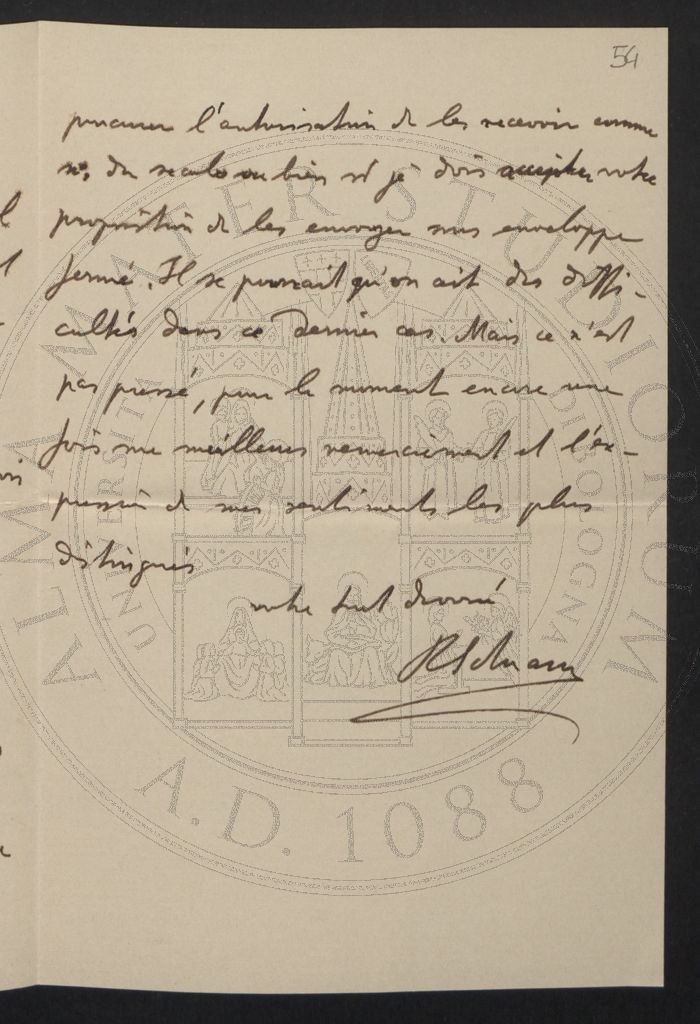 54
procurer l'autorisation de les recevoir comme
du ou bien si je dois accepter votre
proposition de les envoyer sous enveloppe
fermé. Il se pourrait qu'on ait des diffi-
cultés dans ce dernier cas. Mais ce n'est
pas pressé, pour le moment encore une
fois me meilleurs remerciement et l'ex-
pression de mes sentiments les plus
distingués
votre tout dévoué
ALMA MATER STUDIORUM
UNIVERSITÀ DI BOLOGNA
A.D. 1088